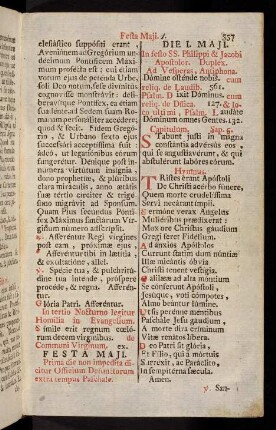 Festa Maji. 357
clesiástico suppósiti erant,
Aveniónem ad Gregórium un-
décimum Pontíficem Máxi-
mum profécta est; cui etiam
votum ejus de peténda Urbe,
soli Deo notum, sese divínitùs
cognovísse monstrávit: deli-
beravítque Póntifex, ea etiam
suadénte, ad Sedem suam Ro-
manam personáliter accédere,
quod & fecit. Eidem Gregó-
rio, & Urbano sexto ejus
successóri acceptíssima fuit:
ádeò, ut legatiónibus eórum
fungerétur. Dénique post in-
númera virtútum insígnia,
dono prophetíæ, & pluribus
clara miráculis, anno ætátis
suæ tértio círciter & trigé-
simo migrávit ad Sponsum.
Quam Pius secúndus Pónti-
fex Máximus sanctárum Vír-
ginum número adscrípsit.
℟. Afferéntur Regi vírgines
post eam, próximæ ejus *
Afferéntur tibi in lætítia,
& exultatióne, allel.
℣. Spécie tua, & pulchritú-
dine tua inténde, próspere
procéde, & regna. Afferén-
tur.
Glória Patri. Afferéntur.
In tertio Nocturno legitur
Homilia in Evangelium.
Símile erit regnum cælo-
rum decem virgínibus. de
Communi Virginum. ex.
FESTA MAJI.
Prima die non impedita di-
citur Officium Defunctorum
extra tempus Paschale.
DIE I. MAJI.
In festo SS. Philippi & Jacobi
Apostolor. Duplex.
Ad Vesperas, Antiphona.
Dómine osténde nobis. cum
reliq. de Laudib. 561.
Psalm. Dixit Dóminus. cum
reliq. de Dñica. 127. & lo-
co ultimi, Psalm. Laudáte
Dóminum omnes Gentes. 132.
Capitulum. Sap. 5.
Stabunt justi in magna
constántia advérsus eos
qui se angustiavérunt, & qui
abstulérunt labóres eórum.
Hymnus.
Tristes erant Apóstoli
De Christi acérbo fúnere,
Quem morte crudelíssima
Servi necárant ímpii.
Sermóne verax Angelus
Muliéribus prædíxerat:
Mox ore Christus gáudium
Gregi feret Fidélium.
Ad ánxios Apóstolos
Currunt statim dum núntiæ
Illæ micántis óbvia
Christi tenent vestígia.
Galilǽæ ad alta móntium
Se cónferunt Apóstoli,
Jesúque, voti cómpotes,
Almo beántur lúmine.
Ut sis perénne méntibus
Paschále Jesu gáudium;
A morte dira críminum
Vitæ renátos líbera.
Deo Patri sit glória,
Et Fílio, qui à mórtuis
Surréxit, ac Paráclito,
In sempitérna sǽcula.
Amen.
℣. San-